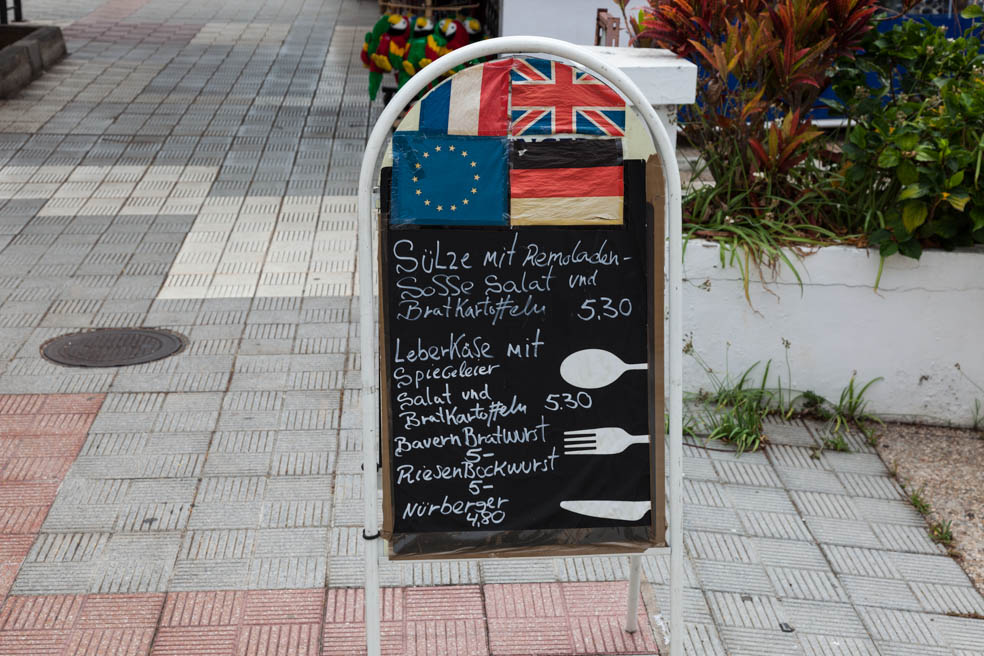 Sülze mit Remoladen-
Sosse Salat und
Bratkartoffeln 5,30
Leberkäse mit
Spiegeleier
Salat und
Bratkartoffeln 5.30
Bayern Bratwurst
5-
Riesen Bockwurst
5-
Nürberger
4,80